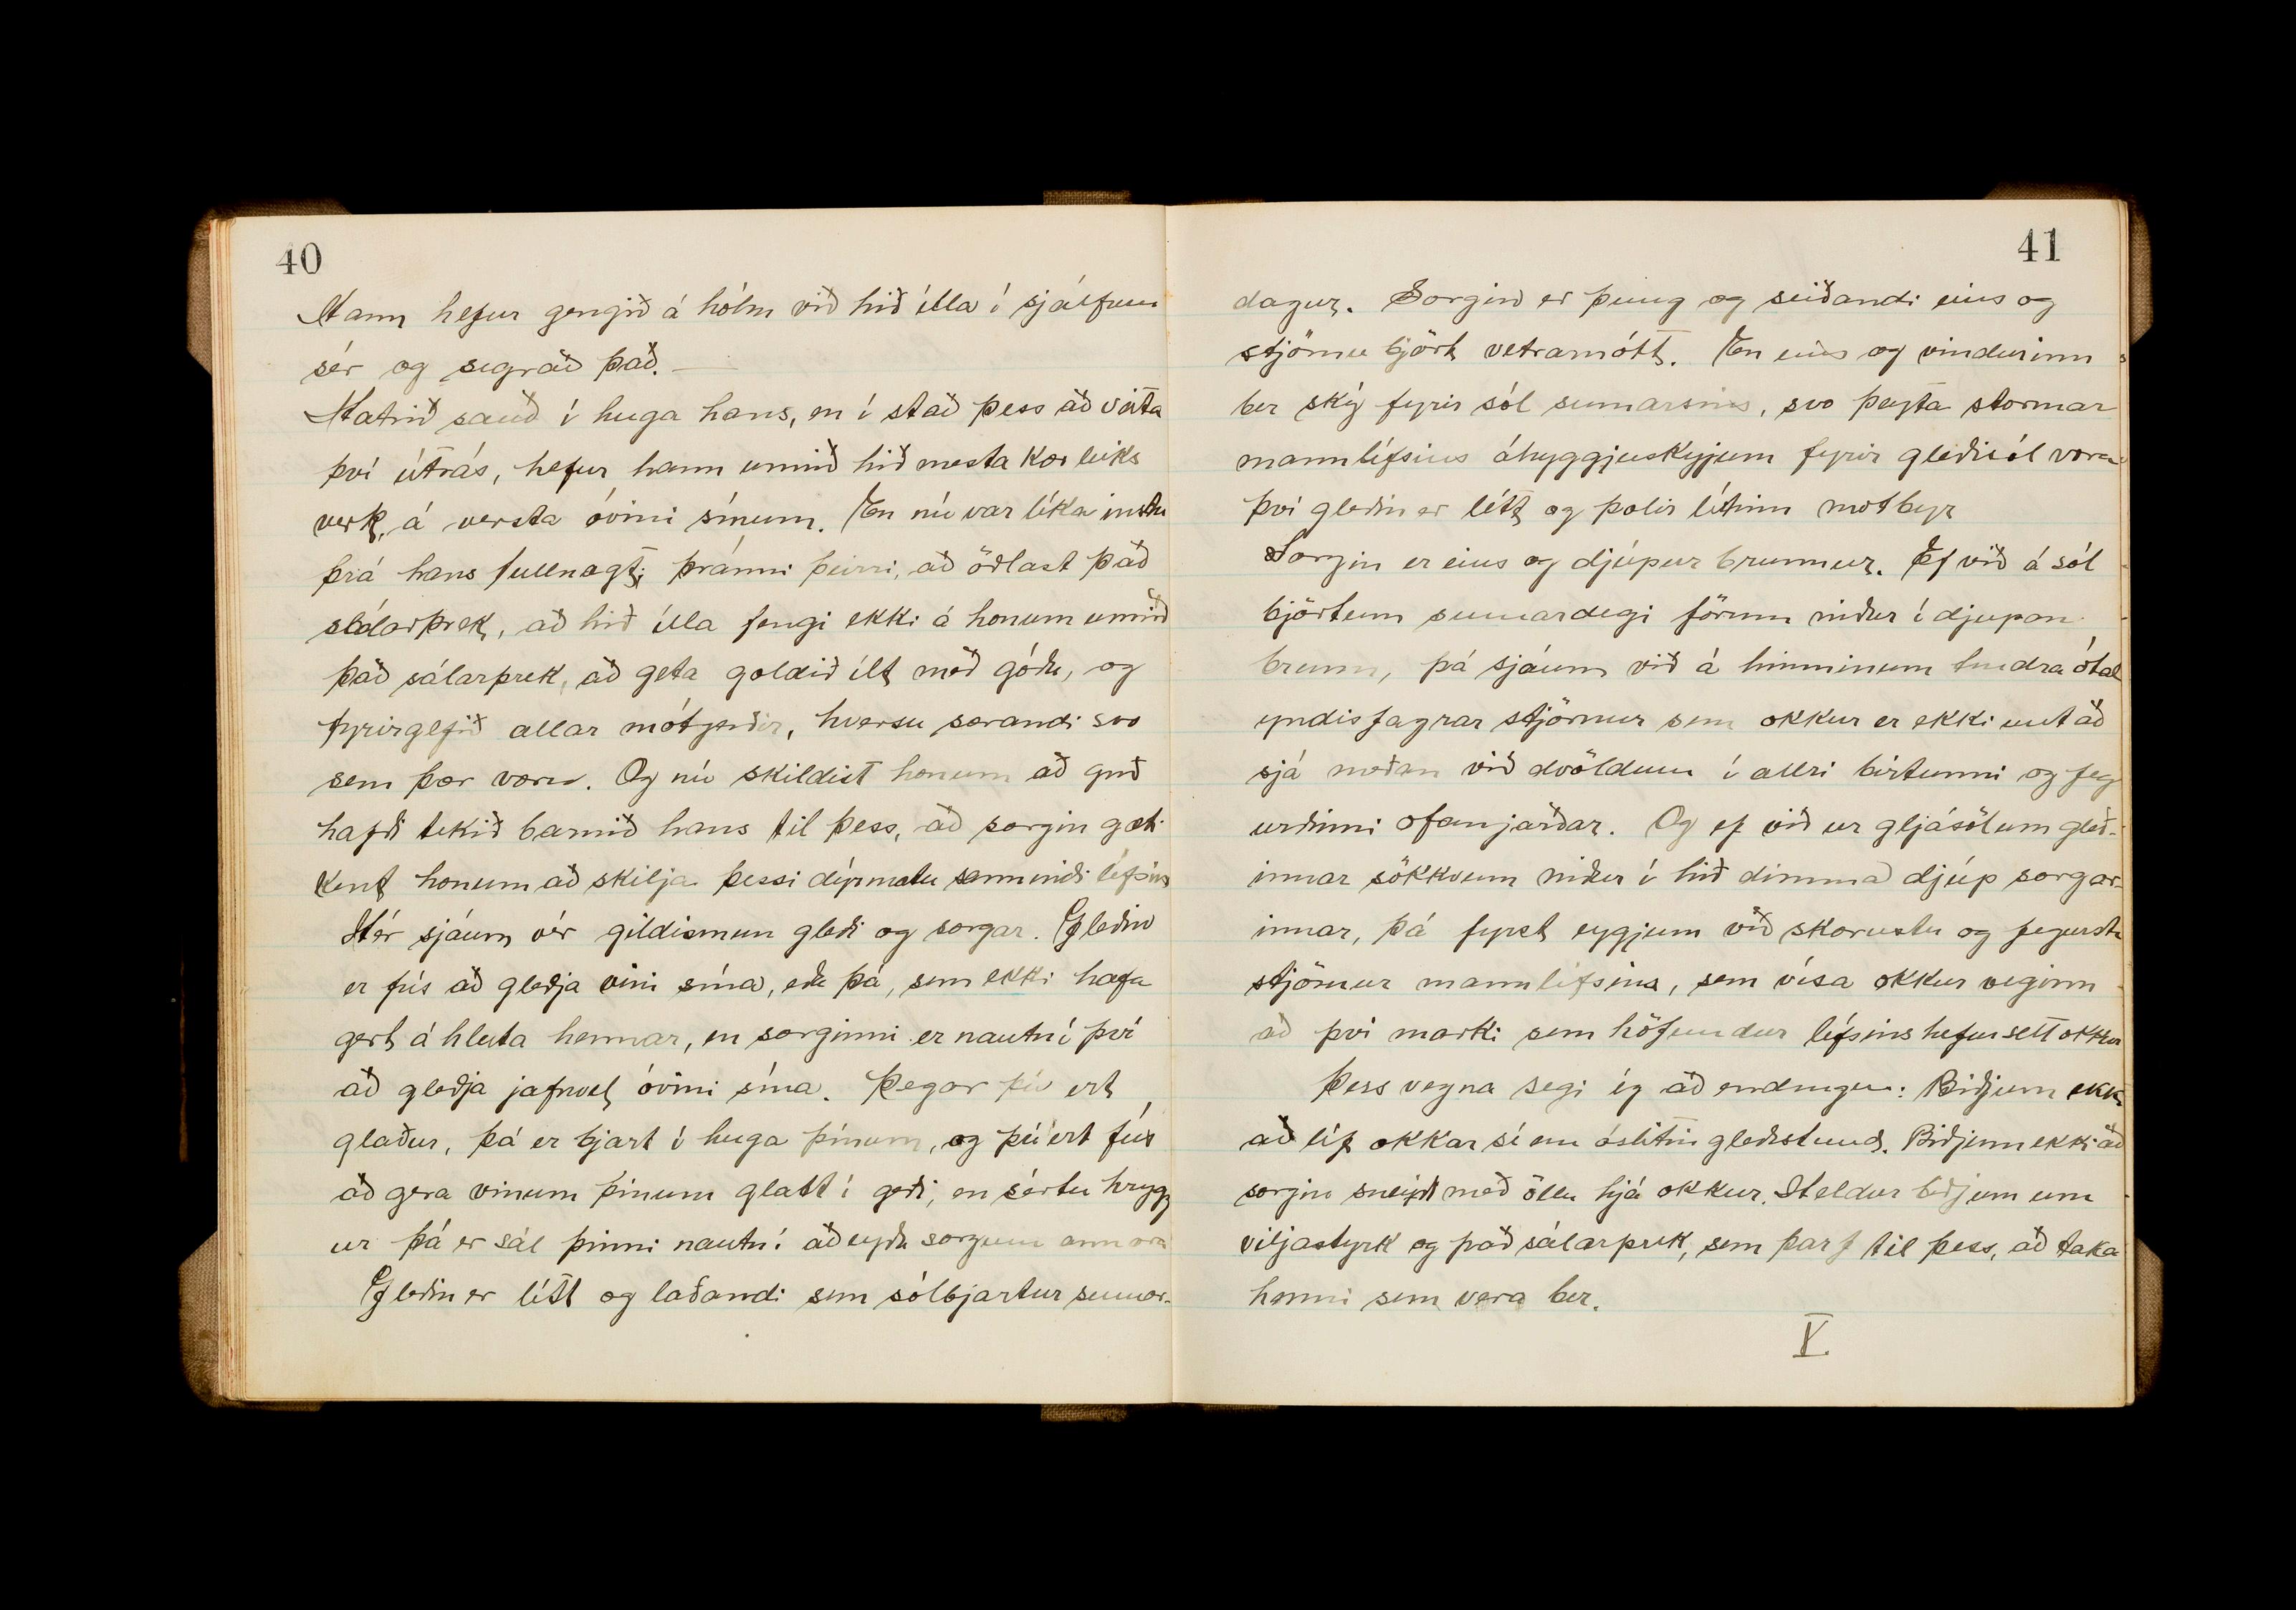 40
Hann hefur gengið á hólm við hið illa í sjálfum
sér og sigrað það. —
Hatrið sauð í huga hans, en í stað þess að veita
því útrás, hefur hann unnið hið mesta kærleiks
verk, á versta óvini sínum. En nú var líka instu
þrá hans fullnægt; þránni þeirri, að öðlast það
sálarþrek, að hið illa fengi ekki á honum unnið
það sálarþrek, að geta goldið ilt með góðu, og
fyrirgefið allar mótgerðir, hversu særandi svo
sem þær voru. Og nú skildist honum að guð
hafði tekið barnið hans til þess, að sorgin gæti
kent honum að skilja þessi dýrmætu sannindi lífsins
Hér sjáum vér gildismun gleði og sorgar. Gleðin
er fús að gleðja vini sína, eða þá, sem ekki hafa
gert á hluta hennar, en sorginni er nautn í því
að gleðja jafnvel óvini sína. Þegar þú ert
glaður, þá er bjart í huga þínum, og þú ert fús
að gera vinum þínum glatt í geði, en sértu hrygg
ur þá er sál þinni nautn í að eyða sorgum annara
Gleðin er létt og laðandi sem sólbjartur sumar-
41
dagur. Sorgin er þung og seiðandi eins og
stjörnubjört vetrarnótt. En eins og vindurinn
ber ský fyrir sól sumarsins, svo þeyta stormar
mannlífsins áhyggjuskýjum fyrir gleðisól vora
því gleðin er létt og þolir lítinn motbyr
Sorgin er eins og djúpur brunnur. Ef við á sól
björtum sumardegi förum niður í djupan
brunn, þá sjáum við á himninum tindra ótal
yndisfagrar stjörnur sem okkur er ekki unt að
sjá meðan við dvöldum í allri birtunni og feg
urðinni ofanjarðar. Og ef við ur gljásölum gleð-
innar sökkvum niður í hið dimma djúp sorgar-
innar, þá fyrst eygjum við skærustu og fegurstu
stjörnur mannlífsins, sem vísa okkur veginn
að því marki sem höfundur lífsins hefur sett okkur
Þess vegna segi ég að endingu: Biðjum ekki
að líf okkar sé ein óslitin gleðistund. Biðjum ekki að
sorgin sneiði með öllu hjá okkur. Heldur biðjum um
viljastyrk og það sálarþrek, sem þarf til þess, að taka
henni sem vera ber.
V.